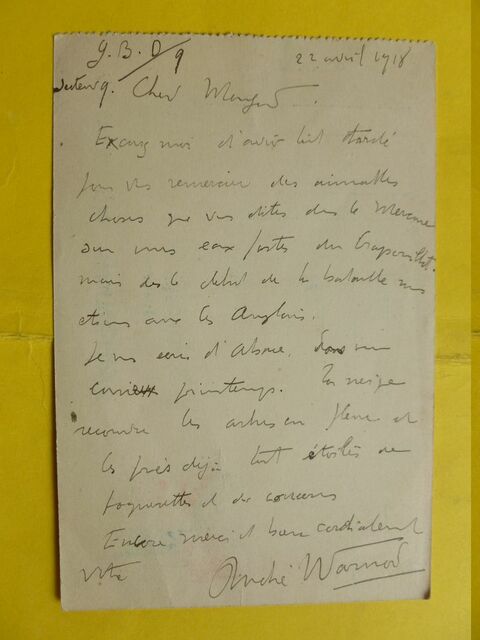 G.B.D/9 22 avril 1918
secteur 9. Cher
Excusez moi d'avoir tant tardé
pour vous remercier des aimables
choses que vous dites dans le Mercure
sur mes eaux fortes du Crapouillot.
mais dès le début de la bataille nous
étions avec les Anglais.
Je vous écris d'Alsace. Dans un
curieux printemps. La neige
recouvre les arbres en fleur et
les prés déjà tout étoilés de
paquerettes et de coucous
Encore merci et bien cordialement
vôtre André Warnod